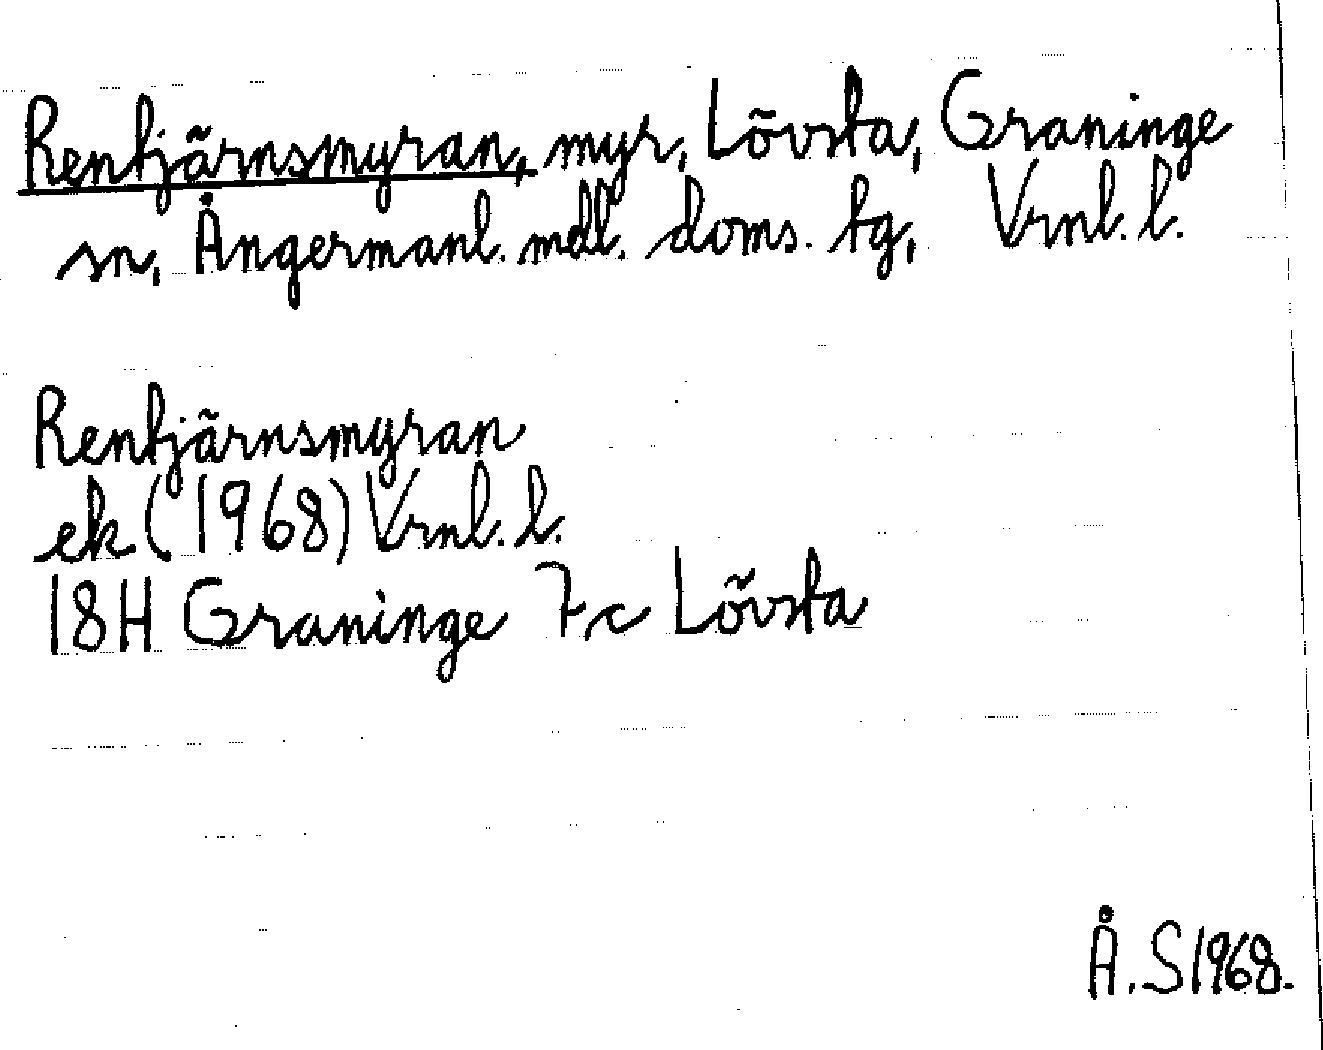 Rentjärnsmyran, myr, Lövsta, Graninge
sn, Ångermanl. mdl. doms. tg, Vrnl. l.
Rentjärnsmyran
ek (1968) Vrnl. l.
18H Graninge 7c Lövsta
Å. S 1968.